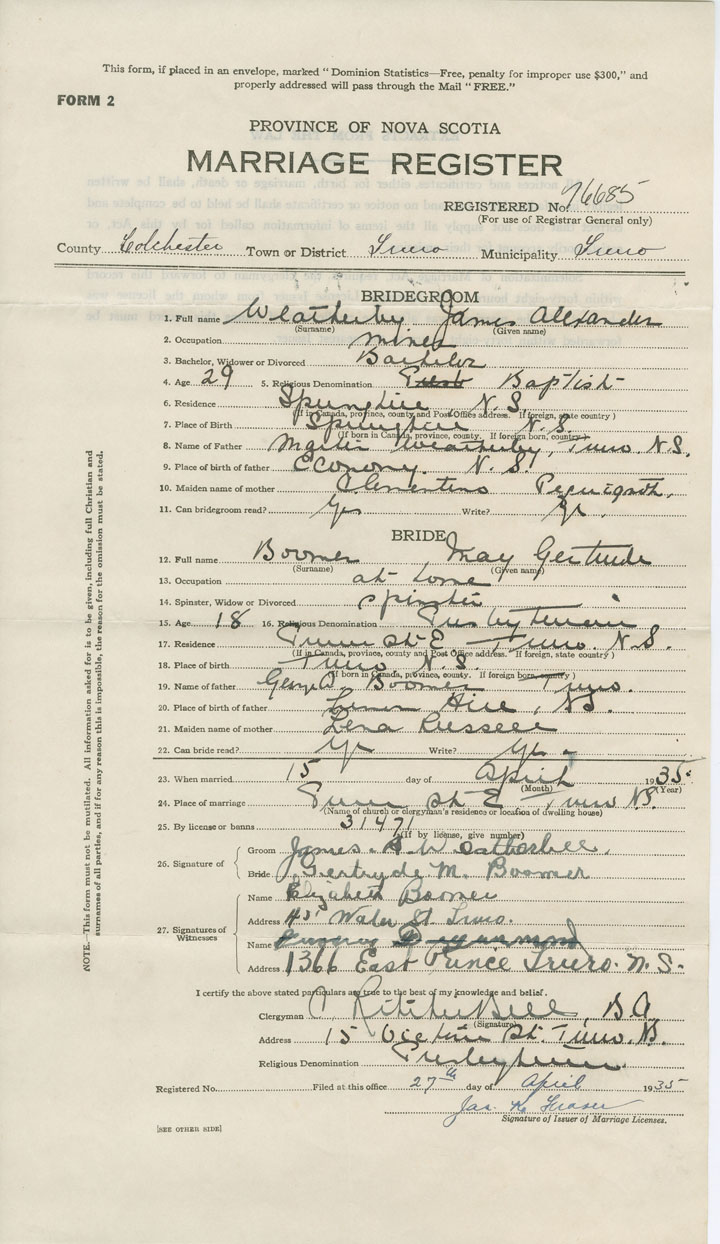 This form, if placed in an envelope, marked "Dominion Statistics—Free, penalty for improper use $300," and
properly addressed will pass through the Mail "FREE."
FORM 2
PROVINCE OF NOVA SCOTIA
MARRIAGE REGISTER
REGISTERED No. 76685
(For use of Registrar General only)
County Colchester Town or District Truro Municipality Truro
BRIDEGROOM
1. Full name Weatherby James Alexander
(Surname) (Given name)
2. Occupation miner
3. Bachelor, Widower or Divorced Bachelor
4. Age 29 5. Religious Denomination Baptist
6. Residence Springhill N.S.
(If in Canada, province, county and Post Office address. If foreign, state country)
7. Place of Birth Springhill N.S.
(If born in Canada, province, county. If foreign born, country)
8. Name of Father Martin Weatherby, Truro N.S.
9. Place of birth of father Economy N.S.
10. Maiden name of mother
11. Can bridegroom read? Yes Write? Yes
BRIDE
12. Full name Boomer May Gertrude
(Surname) (Given name)
13. Occupation at home
14. Spinster, Widow or Divorced spinster
15. Age 18 16. Religious Denomination Presbyterian
17. Residence St E Truro N.S.
(If in Canada, province, county and Post Office address. If foreign, state country)
18. Place of birth Truro N.S.
(If born in Canada, province, county. If foreign born, country)
19. Name of father Boomer Truro.
20. Place of birth of father N.S.
21. Maiden name of mother Lena Russell
22. Can bride read? Yes Write? Yes
23. When married 15 day of April 1935
(Month) (Year)
24. Place of marriage St E Truro N.S.
(Name of church or clergyman's residence or location of dwelling house)
25. By license or banns 31471
(If by license, give number)
26. Signature of
Groom James A
Bride Gertrude M. Boomer
27. Signatures of Witnesses
Name Elizabeth Boomer
Address Water St Truro.
Name
Address 1366 East Prince Truro. N.S.
I certify the above stated particulars are true to the best of my knowledge and belief.
Clergyman Bell, B.A.
(Signature)
Address 15 Victoria St. Truro. N.S.
Religious Denomination Presbyterian
Registered No. Filed at this office 27th day of April 1935
Jas. Fraser
Signature of Issuer of Marriage Licenses.
[SEE OTHER SIDE]
NOTE.—This form must not be mutilated. All information asked for is to be given, including full Christian and
surnames of all parties, and if for any reason this is impossible, the reason for the omission must be stated.